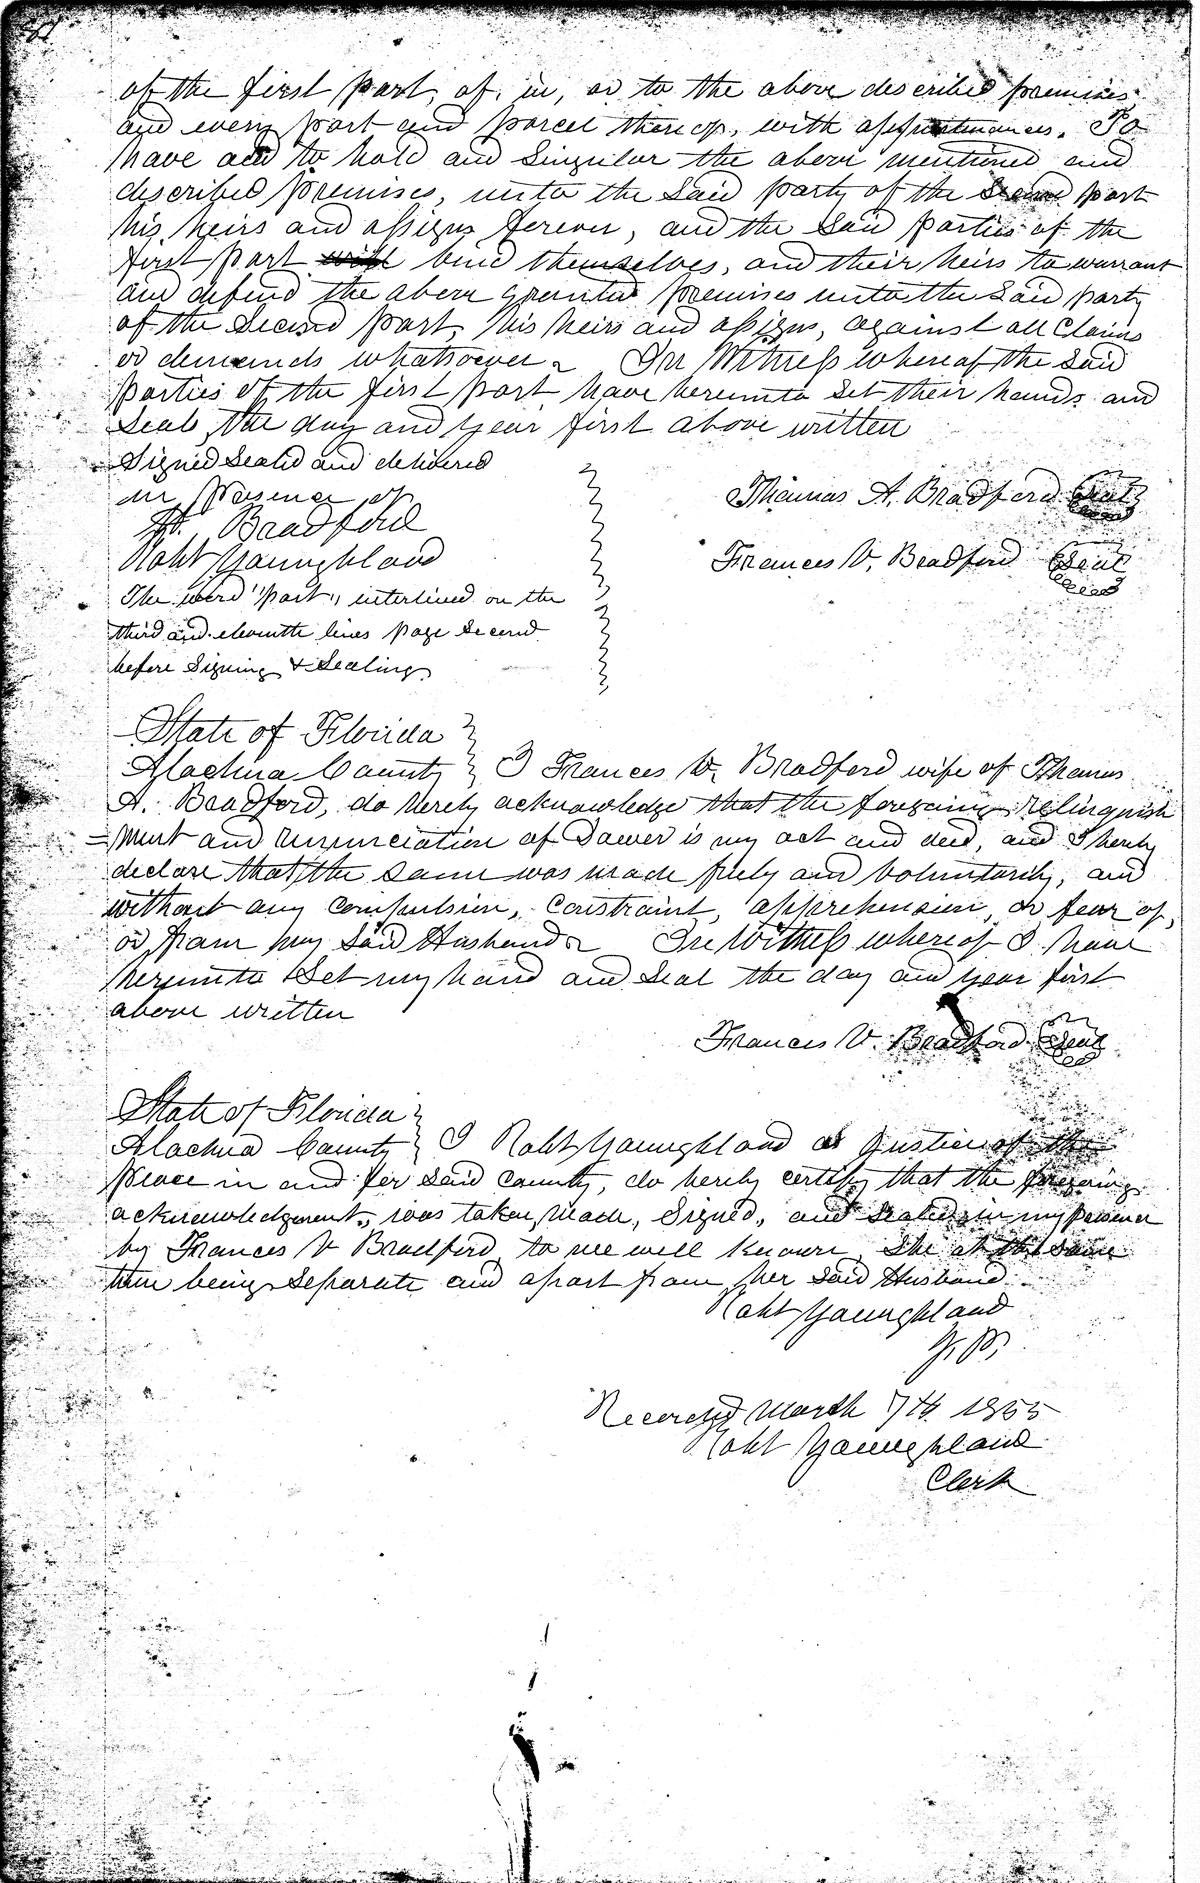 of the first part, of, in, or to the above described premises,
and every part and parcel thereof, with appurtenances. To
have and to hold and Singular the above mentioned and
described premises, unto the Said party of the Second part
his heirs and assigns forever, and the Said parties of the
first part will bind themselves, and their heirs to warrant
and defend the above granted premises unto the Said party
of the Second part, his heirs and assigns, against all Claims
or demands whatsoever. In Witness whereof the Said
parties of the first part have hereunto Set their hands and
Seals, the day and year first above written
Signed Sealed and delivered
in presence of
Bradford
Robt Younghland
The word "part", interlined on the
third and eleventh lines page Second
before Signing & Sealing
Thomas A. Bradford Seal
Frances V. Bradford Seal
State of Florida
Alachua County I Frances V. Bradford wife of Thomas
A. Bradford, do herely acknowledge that the foregoing relinquish
=ment and renunciation of Dower is my act and deed, and I hereby
declare that the same was made freely and voluntarily, and
without any compulsion, constraint, apprehension, or fear of,
or from my Said Husband. In Witness whereof I have
hereunto Set my hand and Seal the day and year first
above written
Frances V. Bradford Seal
State of Florida
Alachua County I Robt Younghland a Justice of the
peace in and for Said County, do hereby certify that the foregoing
acknowledgment, was taken, made, Signed, and Sealed in my presence
by Frances V Bradford to me well known, She at the Same
time being Separate and apart from her Said Husband
Robt Younghland
J. P.
Recorded March 7th 1855
Robt Younghland
Clerk